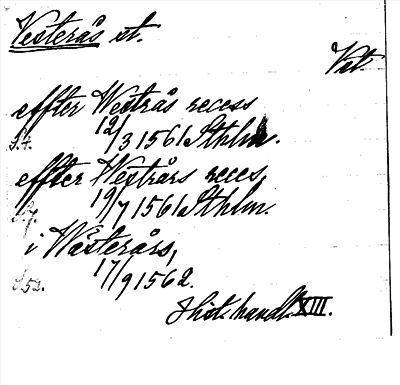 Västerås st.
Vstl.
effter Westrås recess
S.4. 12/3 1561 Sthlm.
effter Westrårs recess,
S.7. 19/7 1561 Sthlm.
i Wästerårs,
S52. 17/9 1562.
Hist. handl. XIII.